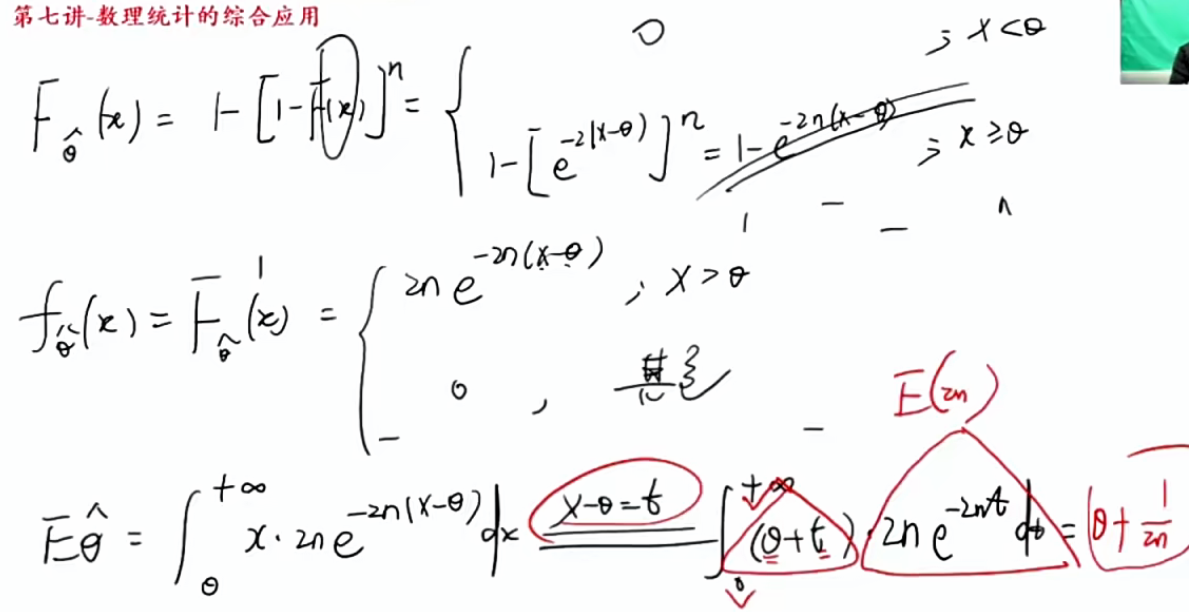 第七讲-数理统计的综合应用
F_θ̂(x) = 1-[1-F(x)]^n = { 0 ; x<θ
1-[e^{-2(x-θ)}]^n = 1-e^{-2n(x-θ)} ; x≥θ
f_θ̂(x) = F'_θ̂(x) = { 2n e^{-2n(x-θ)} ; x>θ
0 , 其它
E(2n)
Eθ̂ = ∫_θ^{+∞} x·2n e^{-2n(x-θ)} dx x-θ=t ∫_0^{+∞} (θ+t)·2n e^{-2nt} dt = θ+1/2n